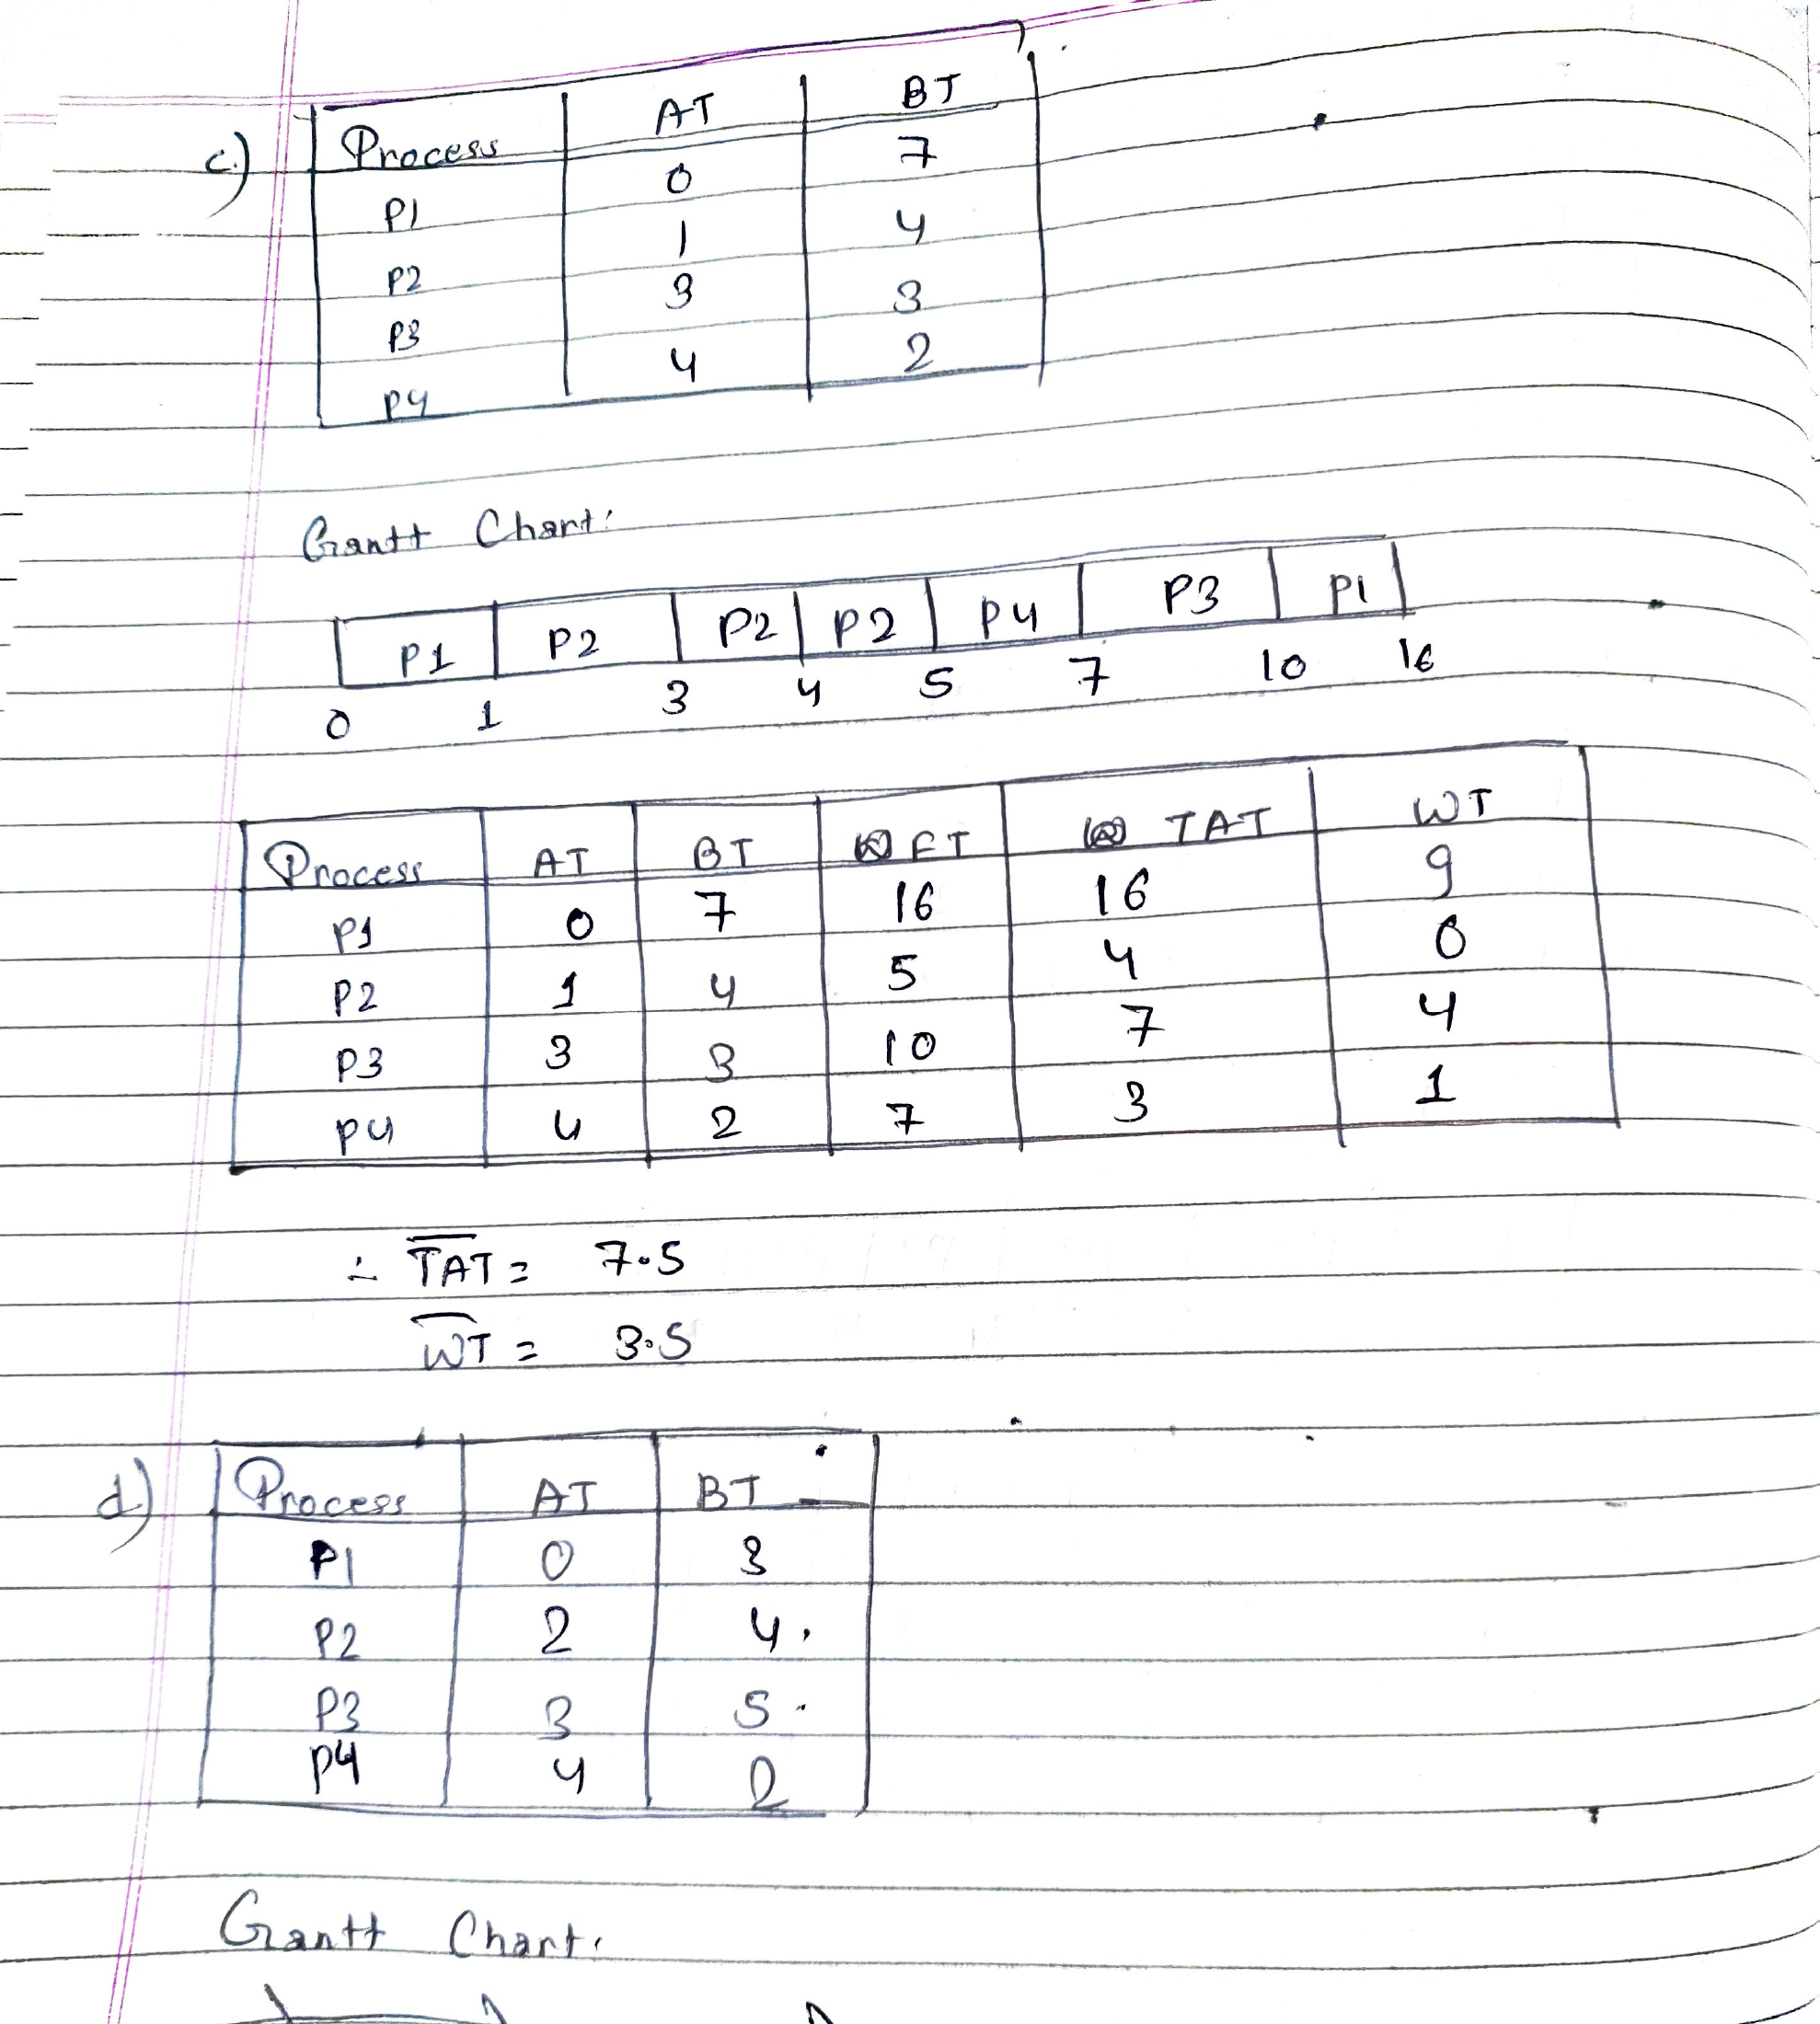 c)
Process AT BT
P1 0 7
P2 1 4
P3 3 3
P4 4 2
Gantt Chart:
P1 P2 P2 P2 P4 P3 P1
0 1 3 4 5 7 10 16
Process AT BT FT TAT WT
P1 0 7 16 16 9
P2 1 4 5 4 0
P3 3 3 10 7 4
P4 4 2 7 3 1
∴ TAT = 7.5
WT = 3.5
d)
Process AT BT
P1 0 3
P2 2 4
P3 3 5
P4 4 2
Gantt Chart: